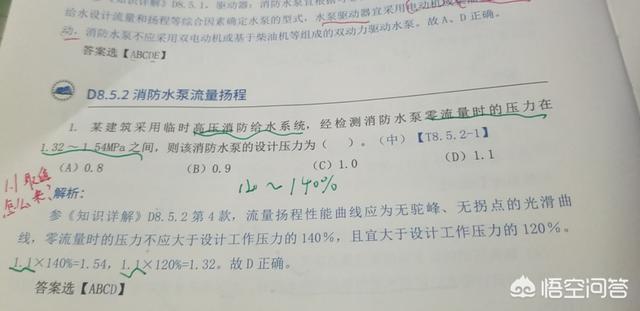 参《知识详解》D8.5.1，驱动器：消防水泵宜根据
给水设计流量和扬程等综合因素确定水泵的型式，水泵驱动器宜采用电动机或
动，消防水泵不应采用双电动机或基于柴油机等组成的双动力驱动水泵。故A、D正确。
答案选【ABCDE】
D8.5.2 消防水泵流量扬程
1. 某建筑采用临时高压消防给水系统，经检测消防水泵零流量时的压力在
1.32～1.54MPa之间，则该消防水泵的设计压力为（ ）。（中）【T8.5.2-1】
(A) 0.8 (B) 0.9 (C) 1.0 (D) 1.1
1.1取值
怎么来?
120～140%
解析：
参《知识详解》D8.5.2 第 4 款，流量扬程性能曲线应为无驼峰、无拐点的光滑曲
线，零流量时的压力不应大于设计工作压力的 140%，且宜大于设计工作压力的 120%。
1.1×140%=1.54，1.1×120%=1.32。故 D 正确。
答案选【ABCD】
悟空问答